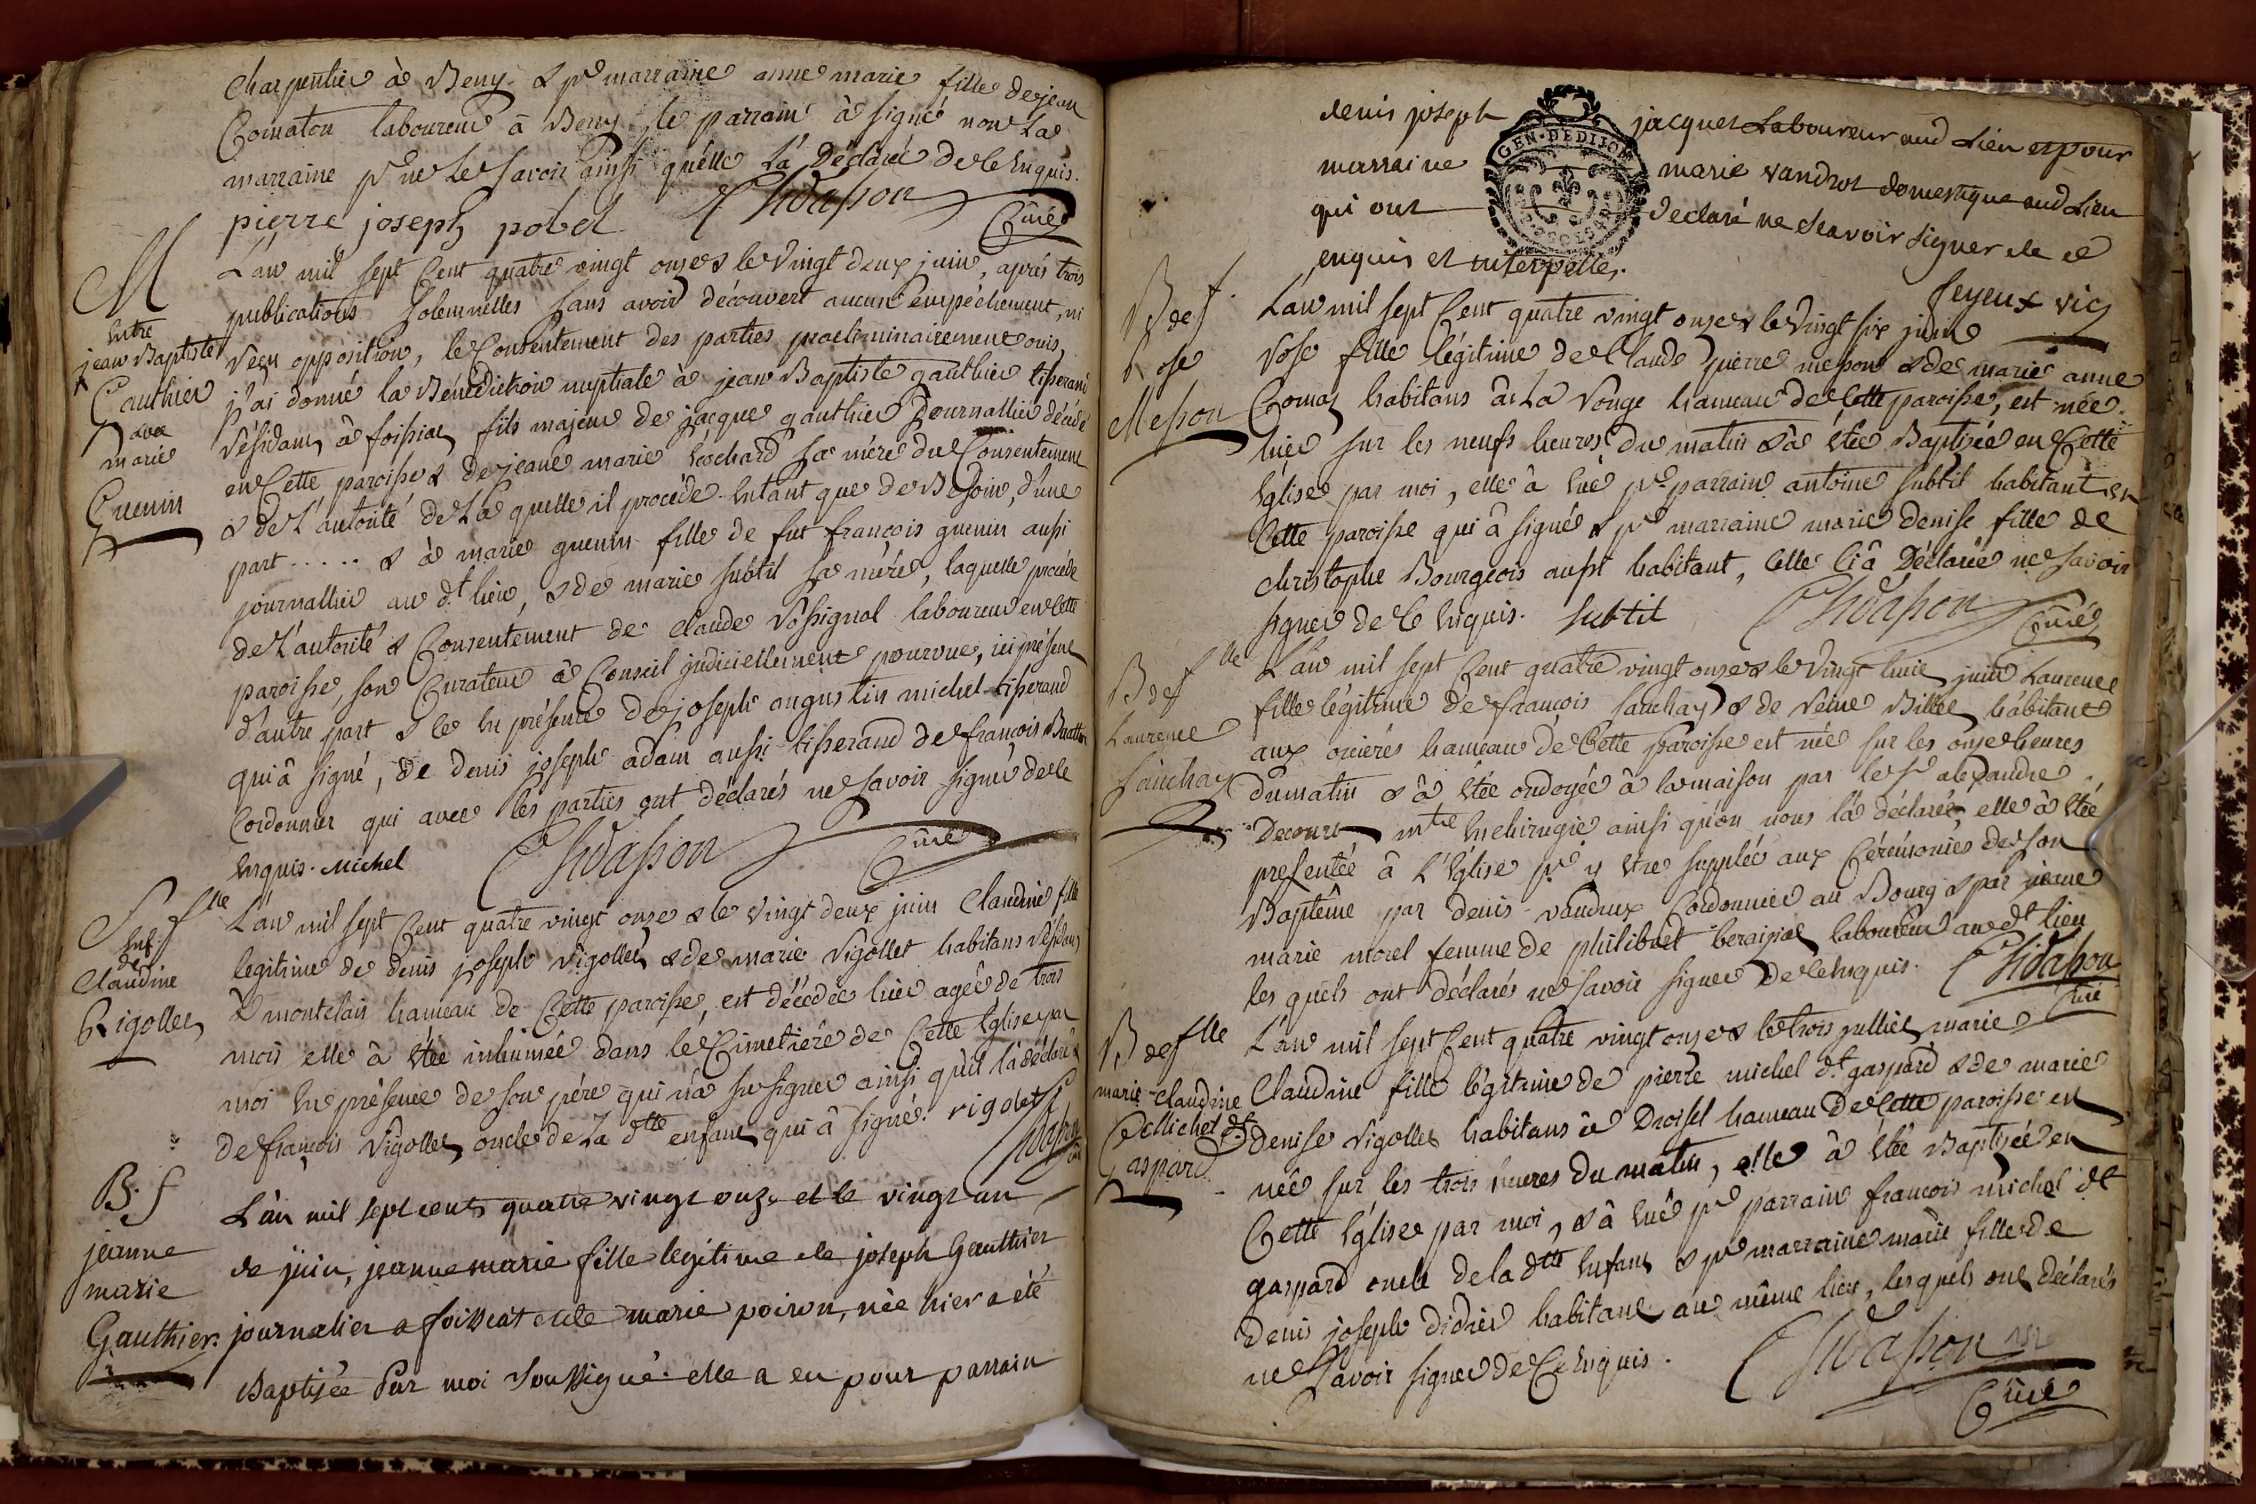 charpentier à Beny & pr marraine anne marie fille de jean
Comaton laboureur à Beny, le parrain à signé non La
marraine pr ne Le Savoir ainsi quelle L'à Déclaré de Ce Enquis.
pierre joseph pobel Chidasson Curé
M
Entre
jean Baptiste
Gauthier
avec
marie
Guenin
L'an mil sept Cent quatre vingt onze & le vingt deux juin, aprés trois
publications solemnelles sans avoir découvert aucun empéchement, ni
reçu opposition, le Consentement des parties praeliminairement ouis,
j'ai donné la Bénédiction nuptiale à jean Baptiste gauthier tisserand
résidant à foissiat fils majeur de jacque gauthier journallier décédé
en Cette paroisse & de jeane marie sa mére du Consentement
& de L'autorité de La quelle il procéde Entant que de Besoin, d'une
part ..... & à marie guenin fille de fut françois guenin aussi
journallier au dt lieu, & de marie subtil sa mére, laquelle procéde
de L'autorité & Consentement de claude Rossignol laboureur en Cette
paroisse, son Curateur à Conseil judiciellement pourvue, ici présent
d'autre part & Ce En présence de joseph augustin michel tisserand
qui à signé, de denis joseph adam aussi tisserand de françois Buatton
Cordonnier qui avec les parties ont déclarés ne savoir signé de Ce
Enquis. Michel Chidasson Curé
S flle
Enf
de
Claudine
Rigollet
L'an mil sept Cent quatre vingt onze & le vingt deux juin Claudine fille
legitime de denis joseph Rigollet & de marie Rigollet habitans résidans
à montclair hameau de Cette paroisse, est décédée hier agée de trois
mois elle à étée inhumée dans le Cimetière de Cette Eglise par
moi En présence de son pére qui n'a su signer ainsi qu'il l'a déclaré &
de françois Rigollet oncle de La dtte enfant qui à signé. rigolet Chidasson
B. f
jeanne
marie
Gauthier.
L'an mil sept cent quatre vingt onze et le vingt un
de juin, jeanne marie fille legitime de joseph Gauthier
journalier a foissiat et de marie poiron, née hier a été
Baptisée Par moi Soussigné. elle a eu pour parrain
denis joseph jacquet Laboureur aud Lieu et pour
marraine marie vandrot domestique aud Lieu
qui ont declaré ne Scavoir signer de ce
enquis et interpellés.
feyeux vic
GEN. DE DIJON
B de f.
Rose
Messon
L'an mil sept Cent quatre vingt onze & le vingt six juin
rose fille légitime de Claude pierre messon & de marie anne
Comas habitans à La Vouge hameau de Cette paroisse, est née
hier sur les neufs heures du matin & à étée Baptisée en Cette
Eglise par moi, elle à Eue pr parrain antoine subtil habitant en
Cette paroisse qui à signé & pr marraine marie denise fille de
christophe Bourgeois aussi habitant, Celle Ci à Déclarée ne Savoir
signer de Ce Enquis. Subtil Chidasson Curé
B de flle
Laurence
Sauchay
L'an mil sept Cent quatre vingt onze & le vingt huit juin Laurence
fille légitime de françois sauchay & de reine Billet habitans
aux orciéres hameau de Cette paroisse est née sur les onze heures
du matin & à étée ondoyée à la maison par le sr alexandre
Decourt mtre En chirugie ainsi qu'on nous l'a déclaré, elle à étée
presentée à L'Eglise pr y être supplée aux Cérémonies de son
Baptême par denis vandrux Cordonnier au Bourg & par jeanne
marie morel femme de philibert beraiziat laboureur au dt lieu
les quels ont déclarés ne savoir signer de Ce Enquis. Chidasson Curé
B de flle
marie-claudine
Michel dt
Gaspard
L'an mil sept Cent quatre vingt onze & le trois julliet marie
Claudine fille légitime de pierre michel dt gaspard & de marie
denise Rigollet habitans à Droisel hameau de Cette paroisse est
née sur les trois heures du matin, elle à étée Baptisée en
Cette Eglise par moi, & à Eue pr parrain françois michel dt
gaspard oncle de la dtte Enfant & pr marraine marie fille de
denis joseph didier habitant au même lieu, les quels ont déclarés
ne Savoir signer de Ce Enquis. Chidasson
Curé